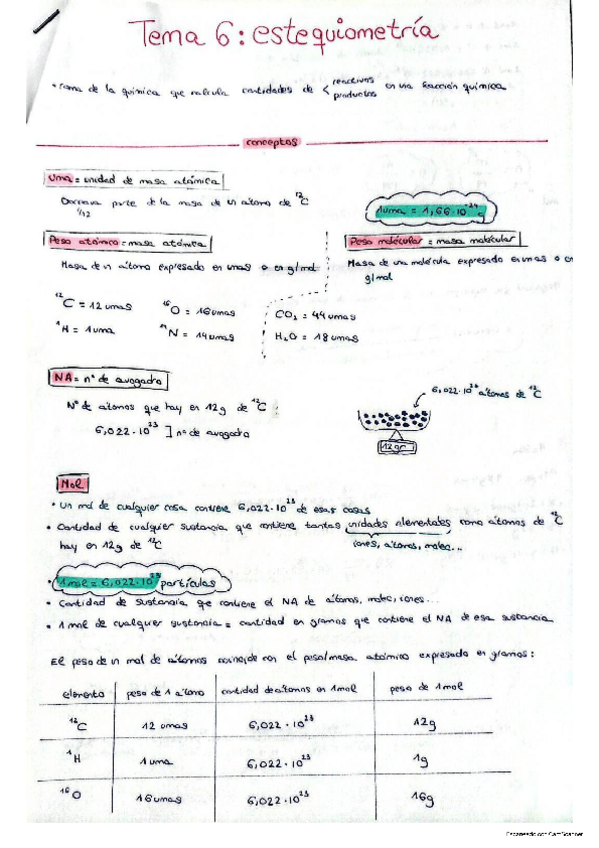 Tema 6: estequiometría
• rama de la química que calcula cantidades de < reactivos productos en una reacción química
conceptos
uma = unidad de masa atómica
Doceava parte de la masa de un átomo de ¹²C
1/12
1uma = 1,66·10⁻²⁴ g
Peso atómico = masa atómica
Masa de un átomo expresado en umas o en g/mol
Peso molecular = masa molecular
Masa de una molécula expresado en umas o en
g/mol
¹²C = 12 umas
¹⁶O = 16 umas
¹H = 1 uma
¹⁴N = 14 umas
CO₂ = 44 umas
H₂O = 18 umas
NA = nº de avogadro
Nº de átomos que hay en 12g de ¹²C :
6,022·10²³ ] nº de avogadro
6,022·10²³ átomos de ¹²C
12gr
Mol
• un mol de cualquier cosa contiene 6,022·10²³ de esas cosas
• Cantidad de cualquier sustancia que contiene tantas unidades elementales como átomos de ¹²C
hay en 12g de ¹²C
iones, átomos, molec...
• 1 mol = 6,022·10²³ partículas
• Cantidad de sustancia que contiene el NA de átomos, molec, iones...
• 1 mol de cualquier sustancia = cantidad en gramos que contiene el NA de esa sustancia
El peso de un mol de átomos coincide con el peso/masa atómico expresado en gramos:
elemento peso de 1 átomo cantidad de átomos en 1mol peso de 1mol
¹²C 12 umas 6,022·10²³ 12g
¹H 1 uma 6,022·10²³ 1g
¹⁶O 16 umas 6,022·10²³ 16g
Escaneado con CamScanner